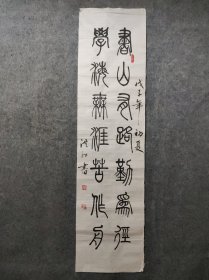 書山有路勤為徑
戊子年初夏
學海無涯苦作舟